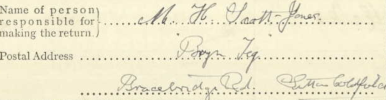 Name of person
responsible for
making the return.} M. H. Scott-Jones.
Postal Address "Bryn Teg"
Bracebridge Rd. Sutton Coldfield